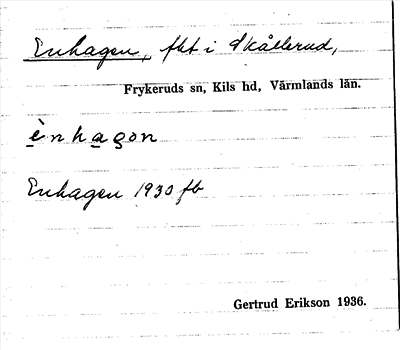 Enhagen, fkt i Skållerud,
Frykeruds sn, Kils hd, Värmlands län.
ènhagon
Enhagen 1930 fb
Gertrud Erikson 1936.